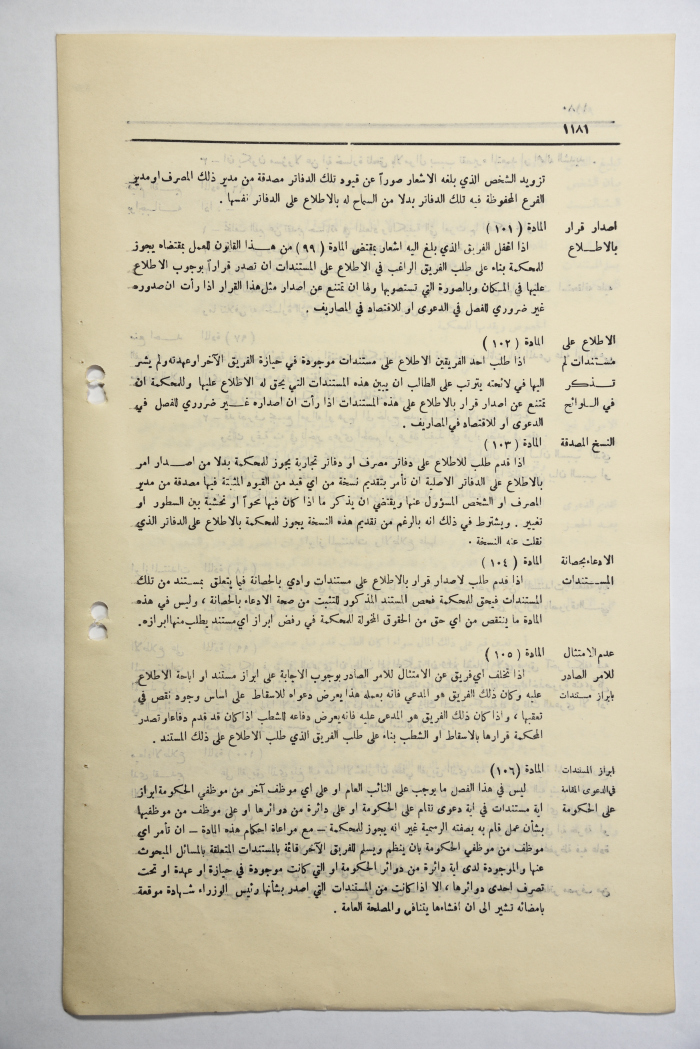 ١١٨١
تزويد الشخص الذي بلغه الاشعار صوراً عن قيود تلك الدفاتر مصدقة من مدير ذلك المصرف او مدير
الفرع المحفوظة فيه تلك الدفاتر بدلا من السماح له بالاطلاع على الدفاتر نفسها .
اصدار قرار المادة ( ١٠١ )
بالاطـــلاع اذا اغفل الفريق الذي بلغ اليه اشعار بمقتضى المادة ( ٩٩ ) من هـــذا القانون للعمل بمقتضاه يجوز
للمحكمة بناء على طلب الفريق الراغب في الاطلاع على المستندات ان تصدر قراراً بوجوب الاطلاع
عليها في المكان وبالصورة التي تستصوبها ولها ان تمتنع عن اصدار مثل هذا القرار اذا رأت ان صدوره
غير ضروري للفصل في الدعوى او للاقتصاد في المصاريف .
الاطلاع على المادة ( ١٠٢ )
مستندات لم اذا طلب احد الفريقين الاطلاع على مستندات موجودة في حيازة الفريق الآخر او عهدته ولم يشر
تـــذكر اليها في لائحته يترتب على الطالب ان يبين هذه المستندات التي يحق له الاطلاع عليها وللمحكمة ان
في اللوائح تمتنع عن اصدار قرار بالاطلاع على هذه المستندات اذا رأت ان اصداره غـــير ضروري للفصل في
الدعوى او للاقتصاد في المصاريف .
النسخ المصدقة المادة ( ١٠٣ )
اذا قدم طلب للاطلاع على دفاتر مصرف او دفاتر تجارية يجوز للمحكمة بدلا من اصـــدار امر
بالاطلاع على الدفاتر الاصلية ان تأمر بتقديم نسخة من اي قيد من القيود المثبتة فيها مصدقة من مدير
المصرف او الشخص المسؤول عنها ويقتضي ان يذكر ما اذا كان فيها محواً او تحشية بين السطور او
تغيير . ويشترط في ذلك انه بالرغم من تقديم هذه النسخة يجوز للمحكمة بالاطلاع على الدفاتر الذي
نقلت عنه النسخة .
الادعاء بحصانة المادة ( ١٠٤ )
المســـتندات اذا قدم طلب لاصدار قرار بالاطلاع على مستندات وادي بالحصانة فيما يتعلق بمستند من تلك
المستندات فيحق للمحكمة فحص المستند المذكور للتثبت من صحة الادعاء بالحصانة ، وليس في هذه
المادة ما ينتقص من اي حق من الحقوق المخولة للمحكمة في رفض ابراز اي مستند يطلب منها ابرازه .
عدم الامتثال المادة ( ١٠٥ )
للامر الصادر اذا تخلف اي فريق عن الامتثال للامر الصادر بوجوب الاجابة على ابراز مستند او اباحة الاطلاع
بابراز مستندات عليه وكان ذلك الفريق هو المدعي فانه بعمله هذا يعرض دعواه للاسقاط على اساس وجود نقص في
تعقبها ، واذا كان ذلك الفريق هو المدعى عليه فانه يعرض دفاعه للشطب اذا كان قد قدم دفاعا وتصدر
المحكمة قرارها بالاسقاط او الشطب بناء على طلب الفريق الذي طلب الاطلاع على ذلك المستند .
ابراز المستندات المادة ( ١٠٦ )
في الدعوى المقامة ليس في هذا الفصل ما يوجب على النائب العام او على اي موظف آخر من موظفي الحكومة ابراز
على الحكومة اية مستندات في اية دعوى تقام على الحكومة او على دائرة من دوائرها او على موظف من موظفيها
بشأن عمل قام به بصفته الرسمية غير انه يجوز للمحكمة — مع مراعاة احكام هذه المادة — ان تأمر اي
موظف من موظفي الحكومة بان ينظم ويسلم للفريق الآخر قائمة بالمستندات المتعلقة بالمسائل المبحوث
عنها والموجودة لدى اية دائرة من دوائر الحكومة او التي كانت موجودة في حيازة او عهدة او تحت
تصرف احدى دوائرها ، الا اذا كانت من المستندات التي اصدر بشأنها رئيس الوزراء شهادة موقعة
بامضائه تشير الى ان افشاءها يتنافى والمصلحة العامة .